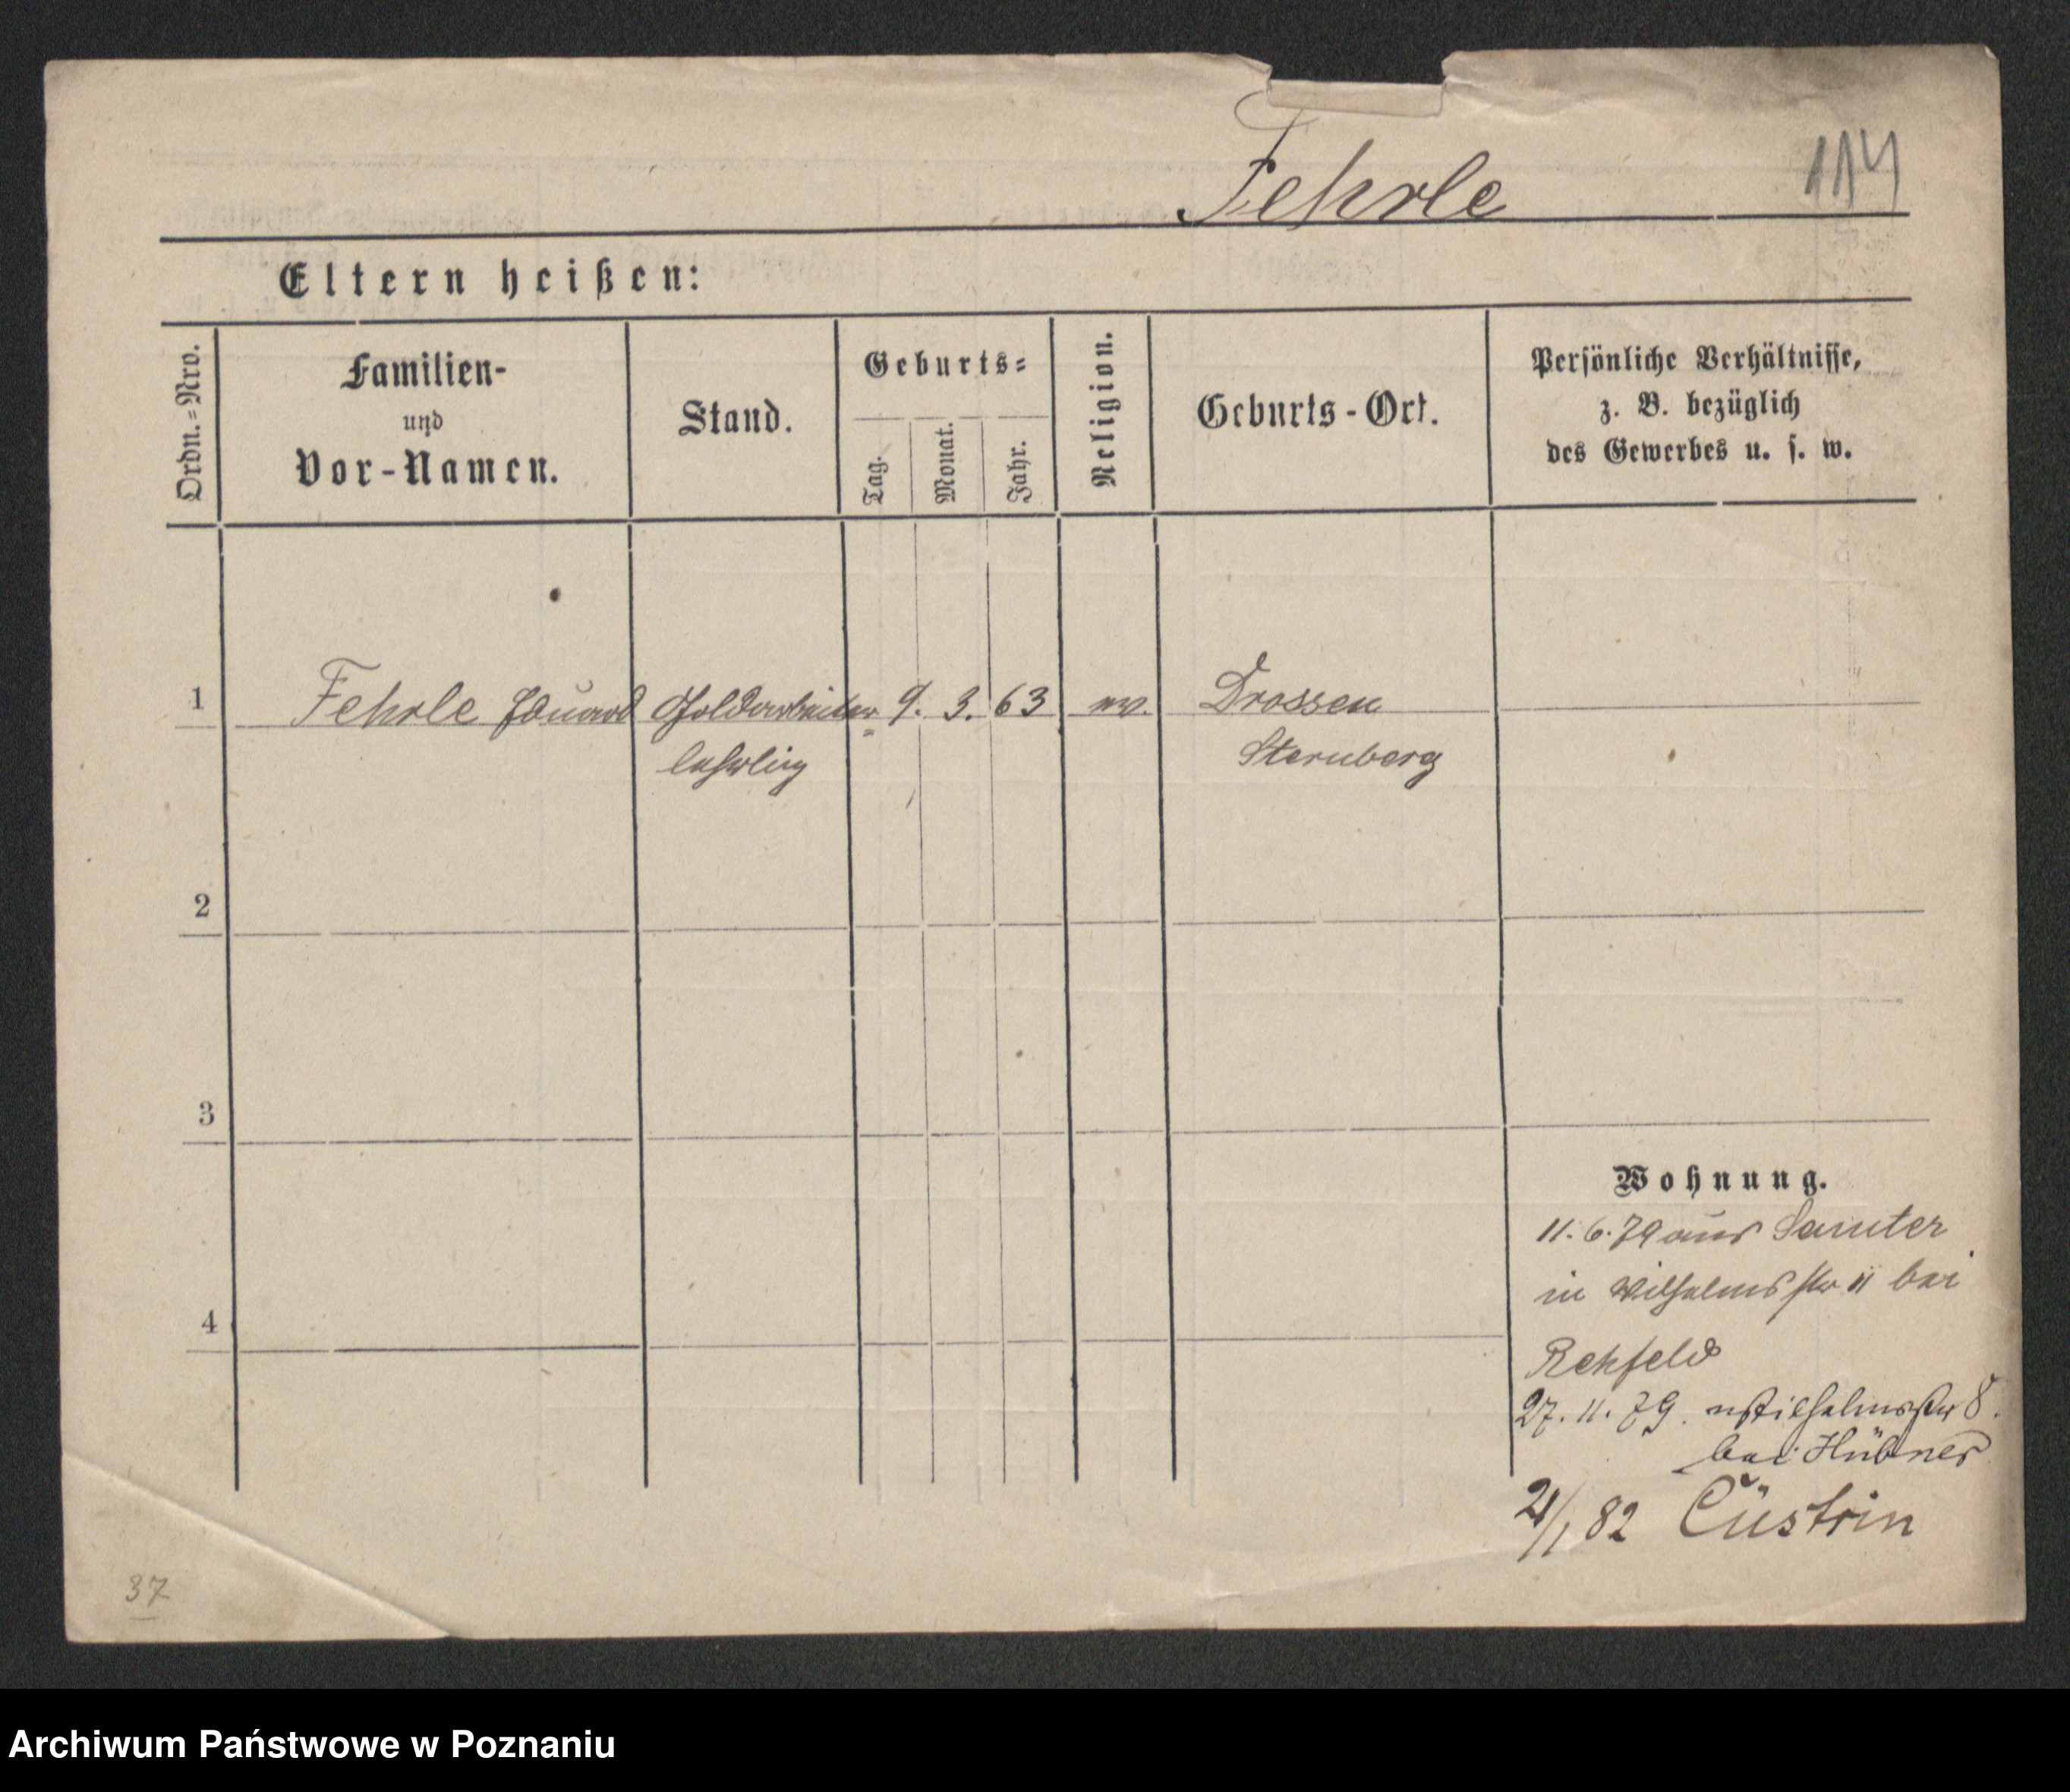 Fehrle
114
Eltern heißen:
Ordn.=Nro.
Familien-
und
Vor-Namen.
Stand.
Geburts=
Tag.
Monat.
Jahr.
Religion.
Geburts-Ort.
Persönliche Verhältnisse,
z. B. bezüglich
des Gewerbes u. s. w.
1 Fehrle Eduard Goldarbeiter= 9. 3. 63 ev. Drossen
lehrling Sternberg
2
3
4
Wohnung.
11.6.79 aus Samter
in Wilhelmsstr 11 bei
Rehfeld
27.11.79. Wilhelmsstr 8.
bei Hübner
21/1 82 Cüstrin
37
Archiwum Państwowe w Poznaniu